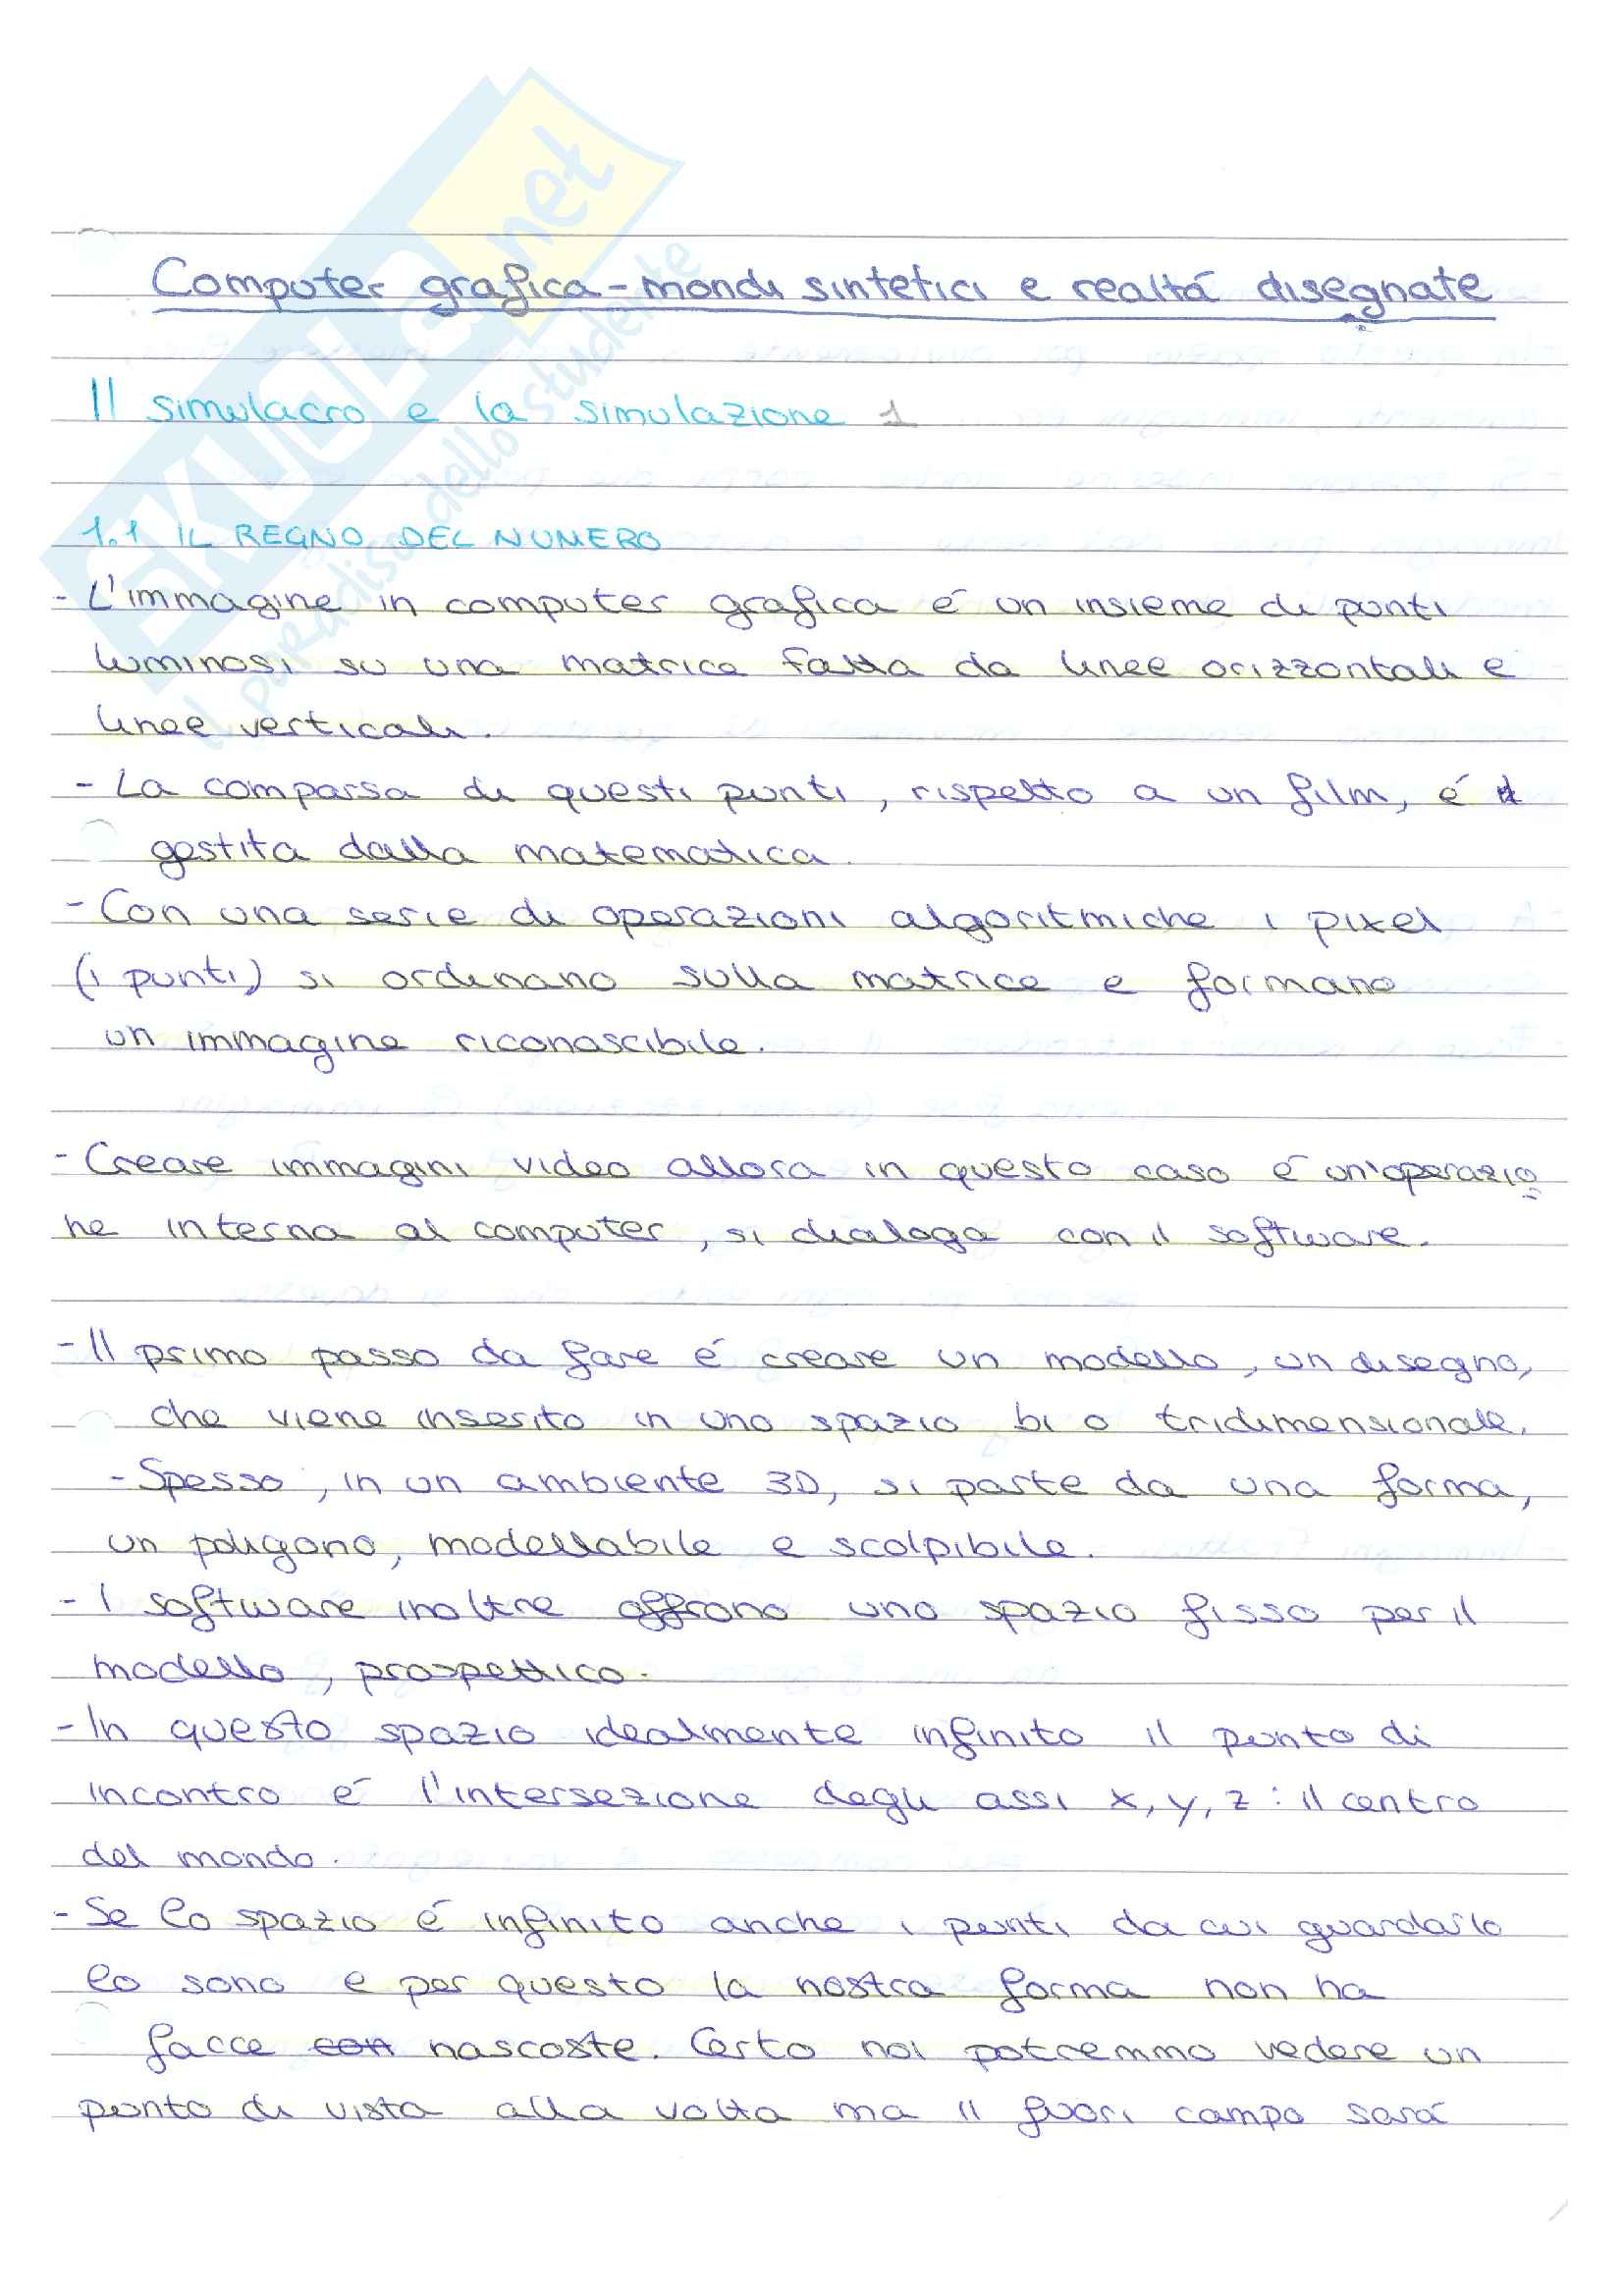 SKUOLA.net
il paradiso dello studente
Computer grafica - mondi sintetici e realtá disegnate
Il simulacro e la simulazione 1
1.1 IL REGNO DEL NUMERO
- L'immagine in computer grafica é un insieme di punti
luminosi su una matrice fatta da linee orizzontali e
linee verticali.
- La comparsa di questi punti, rispetto a un film, é
gestita dalla matematica.
- Con una serie di operazioni algoritmiche i pixel
(i punti) si ordinano sulla matrice e formano
un immagine riconoscibile.
- Creare immagini video allora in questo caso é un'operazio
ne interna al computer, si dialoga con il software.
- Il primo passo da fare é creare un modello, un disegno,
che viene inserito in uno spazio bi o tridimensionale.
- Spesso, in un ambiente 3D, si parte da una forma,
un poligono, modellabile e scolpibile.
- I software inoltre offrono uno spazio fisso per il
modello, prospettico.
- In questo spazio idealmente infinito il punto di
incontro é l'intersezione degli assi x, y, z : il centro
del mondo.
- Se lo spazio é infinito anche i punti da cui guardarlo
lo sono e per questo la nostra forma non ha
facce con nascoste. Certo noi potremmo vedere un
punto di vista alla volta ma il fuori campo sará